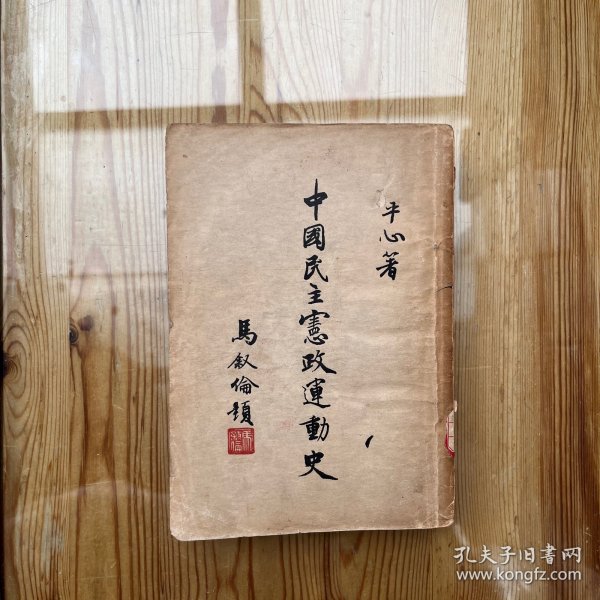 平心著
中國民主憲政運動史
馬叙倫題
孔夫子旧书网
www.kongfz.com